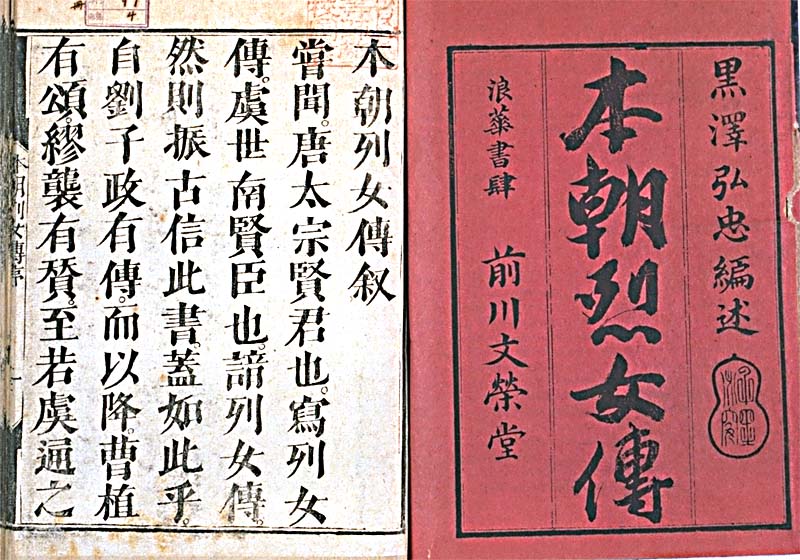 黒澤弘忠編述
本朝烈女傳
浪華書肆 前川文榮堂
本朝列女傳叙
嘗聞。唐太宗賢君也。寫列女
傳。虞世南賢臣也。諳列女傳。
然則振古信此書。蓋如此乎。
自劉子政有傳。而以降。曹植
有頌。繆襲有賛。至若虞通之